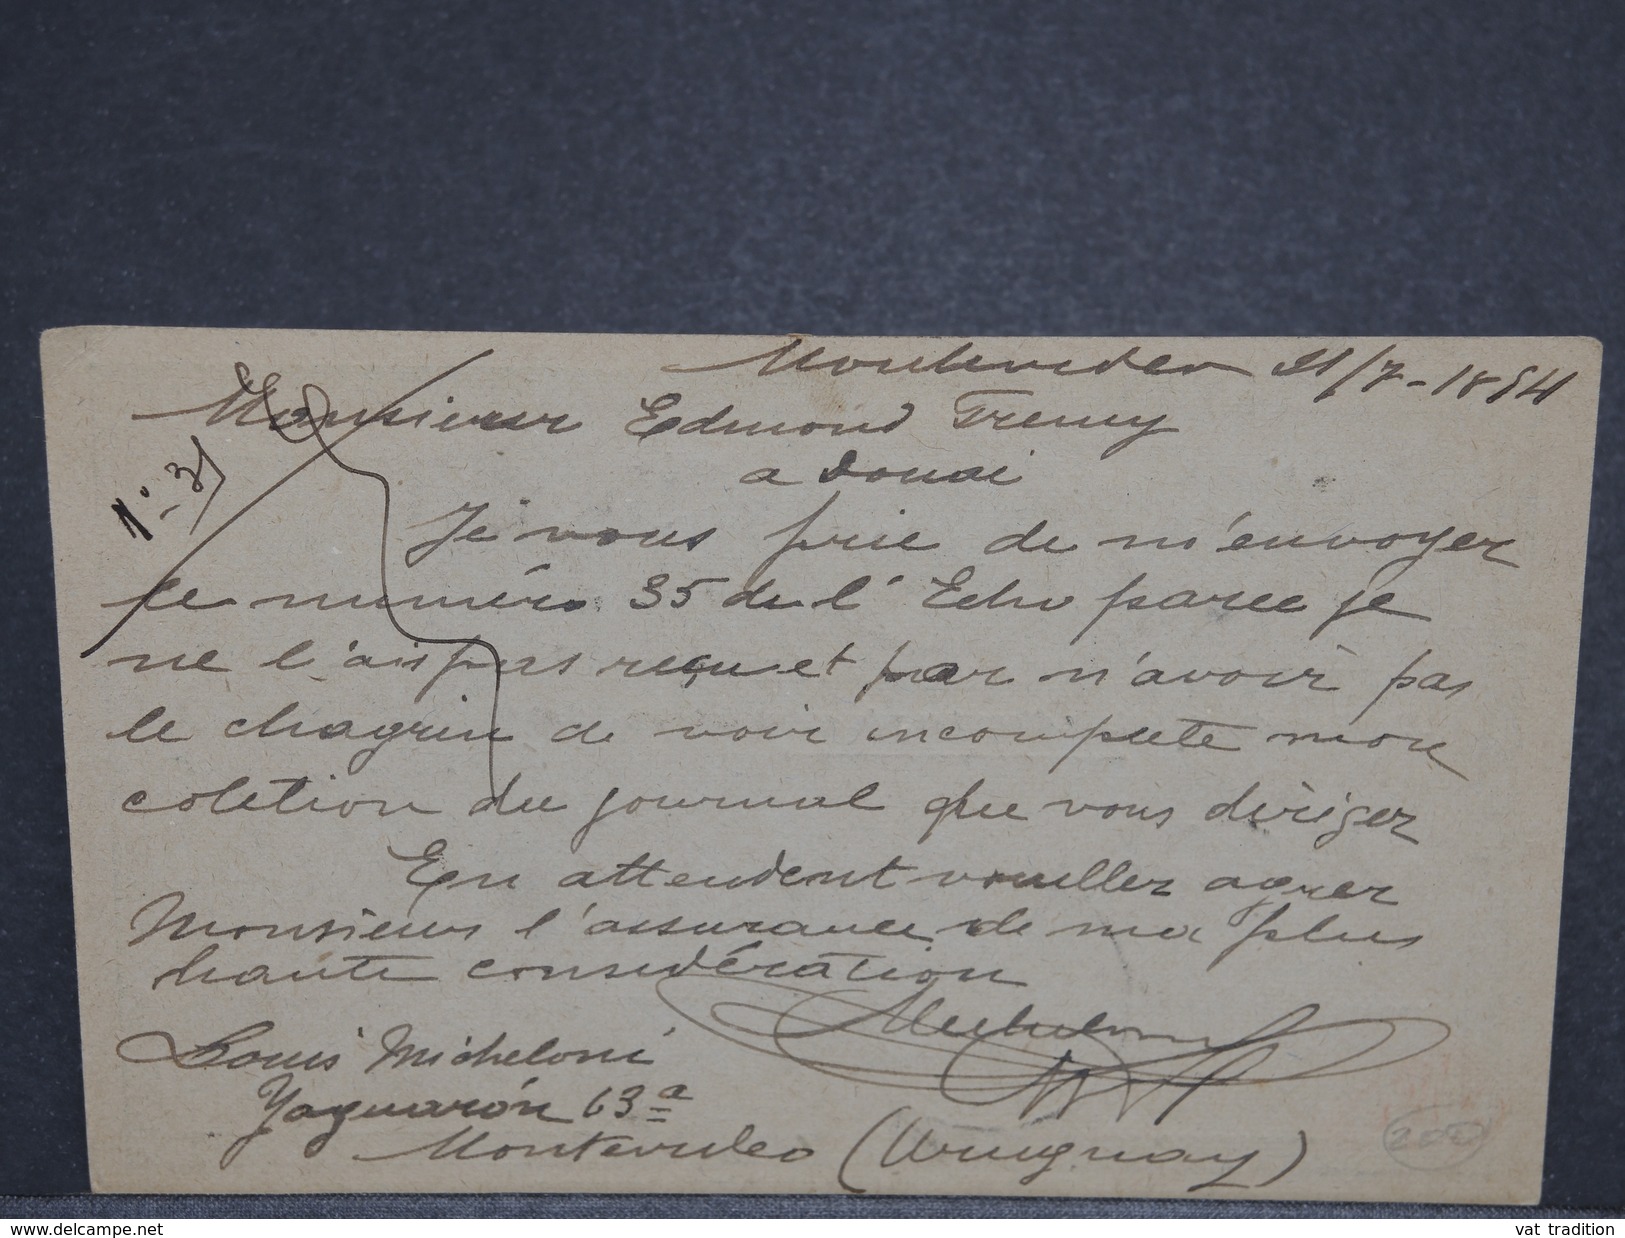 Montevideo 21/7-1894
Monsieur Edmond Fremy
a Douai
Je vous prie de m'envoyer
le numéro 35 de l'Echo parce je
ne l'ais pas reçu et par n'avoir pas
le chagrin de voir incomplete mon
coletion du journal que vous diriger
En attendent vouller agrer
Monsieur l'assurance de ma plus
haute considération
Micheloni
Louis Micheloni
Yaguarón 63a
Montevideo (Uruguay)
www.delcampe.net
vat tradition